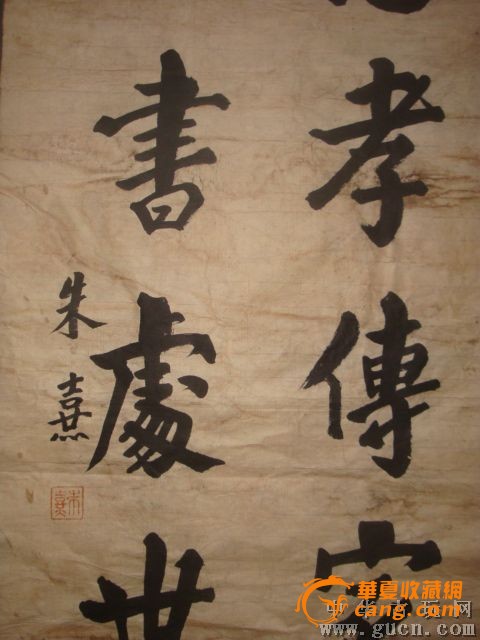 孝傳家
書處世
朱熹
朱熹
華夏收藏網
cang.com
www.gucn.com